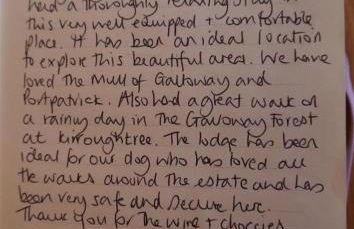 had a thoroughly relaxing stay in
this very well equipped + comfortable
place. It has been an ideal location
to explore this beautiful area. We have
loved the Mull of Galloway and
Portpatrick. Also had a great walk on
a rainy day in the Galloway Forest
at Kirroughtree. The lodge has been
ideal for our dog who has loved all
the walks around the estate and has
been very safe and secure here.
Thank you for the wine + choccies